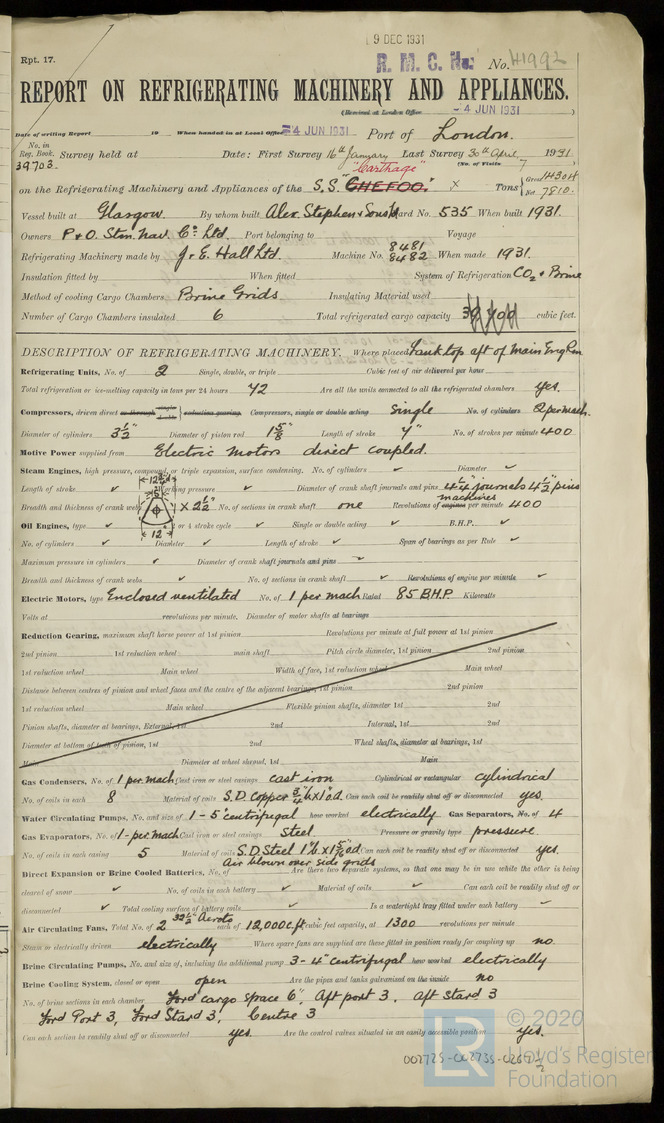 9 DEC 1931
Rpt. 17.
R. M. C. No. No. 41992
REPORT ON REFRIGERATING MACHINERY AND APPLIANCES.
(Received at London Office - 4 JUN 1931 )
Date of writing Report 19 When handed in at Local Office - 4 JUN 1931 Port of London.
No. in Reg. Book. Survey held at Date: First Survey 16th January Last Survey 30th April 1931
39703 (No. of Visits 7
"Carthage"
on the Refrigerating Machinery and Appliances of the S.S. "CHEFOO." x Tons { Gross 14304 Net 7810
Vessel built at Glasgow. By whom built Alex. Stephen & Sons Ltd Yard No. 535 When built 1931.
Owners P & O. Stm. Nav. Co. Ltd. Port belonging to Voyage
Refrigerating Machinery made by J. & E. Hall Ltd. Machine No. 8481 8482 When made 1931.
Insulation fitted by When fitted System of Refrigeration CO2 & Brine
Method of cooling Cargo Chambers Brine Grids Insulating Material used
Number of Cargo Chambers insulated 6 Total refrigerated cargo capacity cubic feet.
DESCRIPTION OF REFRIGERATING MACHINERY. Where placed Tank top aft of Main Eng Rm
Refrigerating Units, No. of 2 Single, double, or triple Cubic feet of air delivered per hour
Total refrigeration or ice-melting capacity in tons per 24 hours 42 Are all the units connected to all the refrigerated chambers yes.
Compressors, driven direct or through single double } reduction gearing. Compressors, single or double acting Single No. of cylinders 2 per mach.
Diameter of cylinders 3½" Diameter of piston rod 1⅝" Length of stroke 4" No. of strokes per minute 400
Motive Power supplied from Electric motors direct coupled.
Steam Engines, high pressure, compound, or triple expansion, surface condensing. No. of cylinders ✓ Diameter ✓
Length of stroke ✓ Working pressure ✓ Diameter of crank shaft journals and pins journals 4½" pins
Breadth and thickness of crank webs x 2½" No. of sections in crank shaft one Revolutions of engines machines per minute 400
12"
Oil Engines, type ✓ or 4 stroke cycle ✓ Single or double acting ✓ B.H.P. ✓
No. of cylinders ✓ Diameter ✓ Length of stroke ✓ Span of bearings as per Rule ✓
Maximum pressure in cylinders ✓ Diameter of crank shaft journals and pins ✓
Breadth and thickness of crank webs ✓ No. of sections in crank shaft ✓ Revolutions of engine per minute ✓
Electric Motors, type Enclosed ventilated No. of 1 per mach Rated 85 B.H.P. Kilowatts
Volts at revolutions per minute. Diameter of motor shafts at bearings
Reduction Gearing, maximum shaft horse power at 1st pinion Revolutions per minute at full power at 1st pinion
2nd pinion 1st reduction wheel main shaft Pitch circle diameter, 1st pinion 2nd pinion
1st reduction wheel Main wheel Width of face, 1st reduction wheel Main wheel
Distance between centres of pinion and wheel faces and the centre of the adjacent bearings, 1st pinion 2nd pinion
1st reduction wheel Main wheel Flexible pinion shafts, diameter 1st 2nd
Pinion shafts, diameter at bearings, External, 1st 2nd Internal, 1st 2nd
Diameter at bottom of teeth of pinion, 1st 2nd Wheel shafts, diameter at bearings, 1st
Main Diameter at wheel shroud, 1st Main
Gas Condensers, No. of 1 per mach Cast iron or steel casings cast iron Cylindrical or rectangular cylindrical
No. of coils in each 8 Material of coils S.D. Copper Can each coil be readily shut off or disconnected yes.
Water Circulating Pumps, No. and size of 1 - 5" centrifugal how worked electrically Gas Separators, No. of 4
Gas Evaporators, No. of 1 - per mach Cast iron or steel casings Steel Pressure or gravity type pressure
No. of coils in each casing 5 Material of coils S.D. Steel Can each coil be readily shut off or disconnected yes.
Air blown over side grids
Direct Expansion or Brine Cooled Batteries, No. of Are there two separate systems, so that one may be in use while the other is being
cleared of snow ✓ No. of coils in each battery ✓ Material of coils ✓ Can each coil be readily shut off or
disconnected ✓ Total cooling surface of battery coils ✓ Is a watertight tray fitted under each battery ✓
Air Circulating Fans, Total No. of 2 32½" Aeroto each of 12,000 c.ft. cubic feet capacity, at 1300 revolutions per minute
Steam or electrically driven electrically Where spare fans are supplied are these fitted in position ready for coupling up no
Brine Circulating Pumps, No. and size of, including the additional pump 3 - 4" centrifugal how worked electrically
Brine Cooling System, closed or open open Are the pipes and tanks galvanised on the inside no
No. of brine sections in each chamber Ford cargo space 6, Aft port 3, Aft Stard 3
Ford Port 3, Ford Stard 3, Centre 3
Can each section be readily shut off or disconnected yes. Are the control valves situated in an easily accessible position yes.
© 2020
LR Lloyd's Register
Foundation